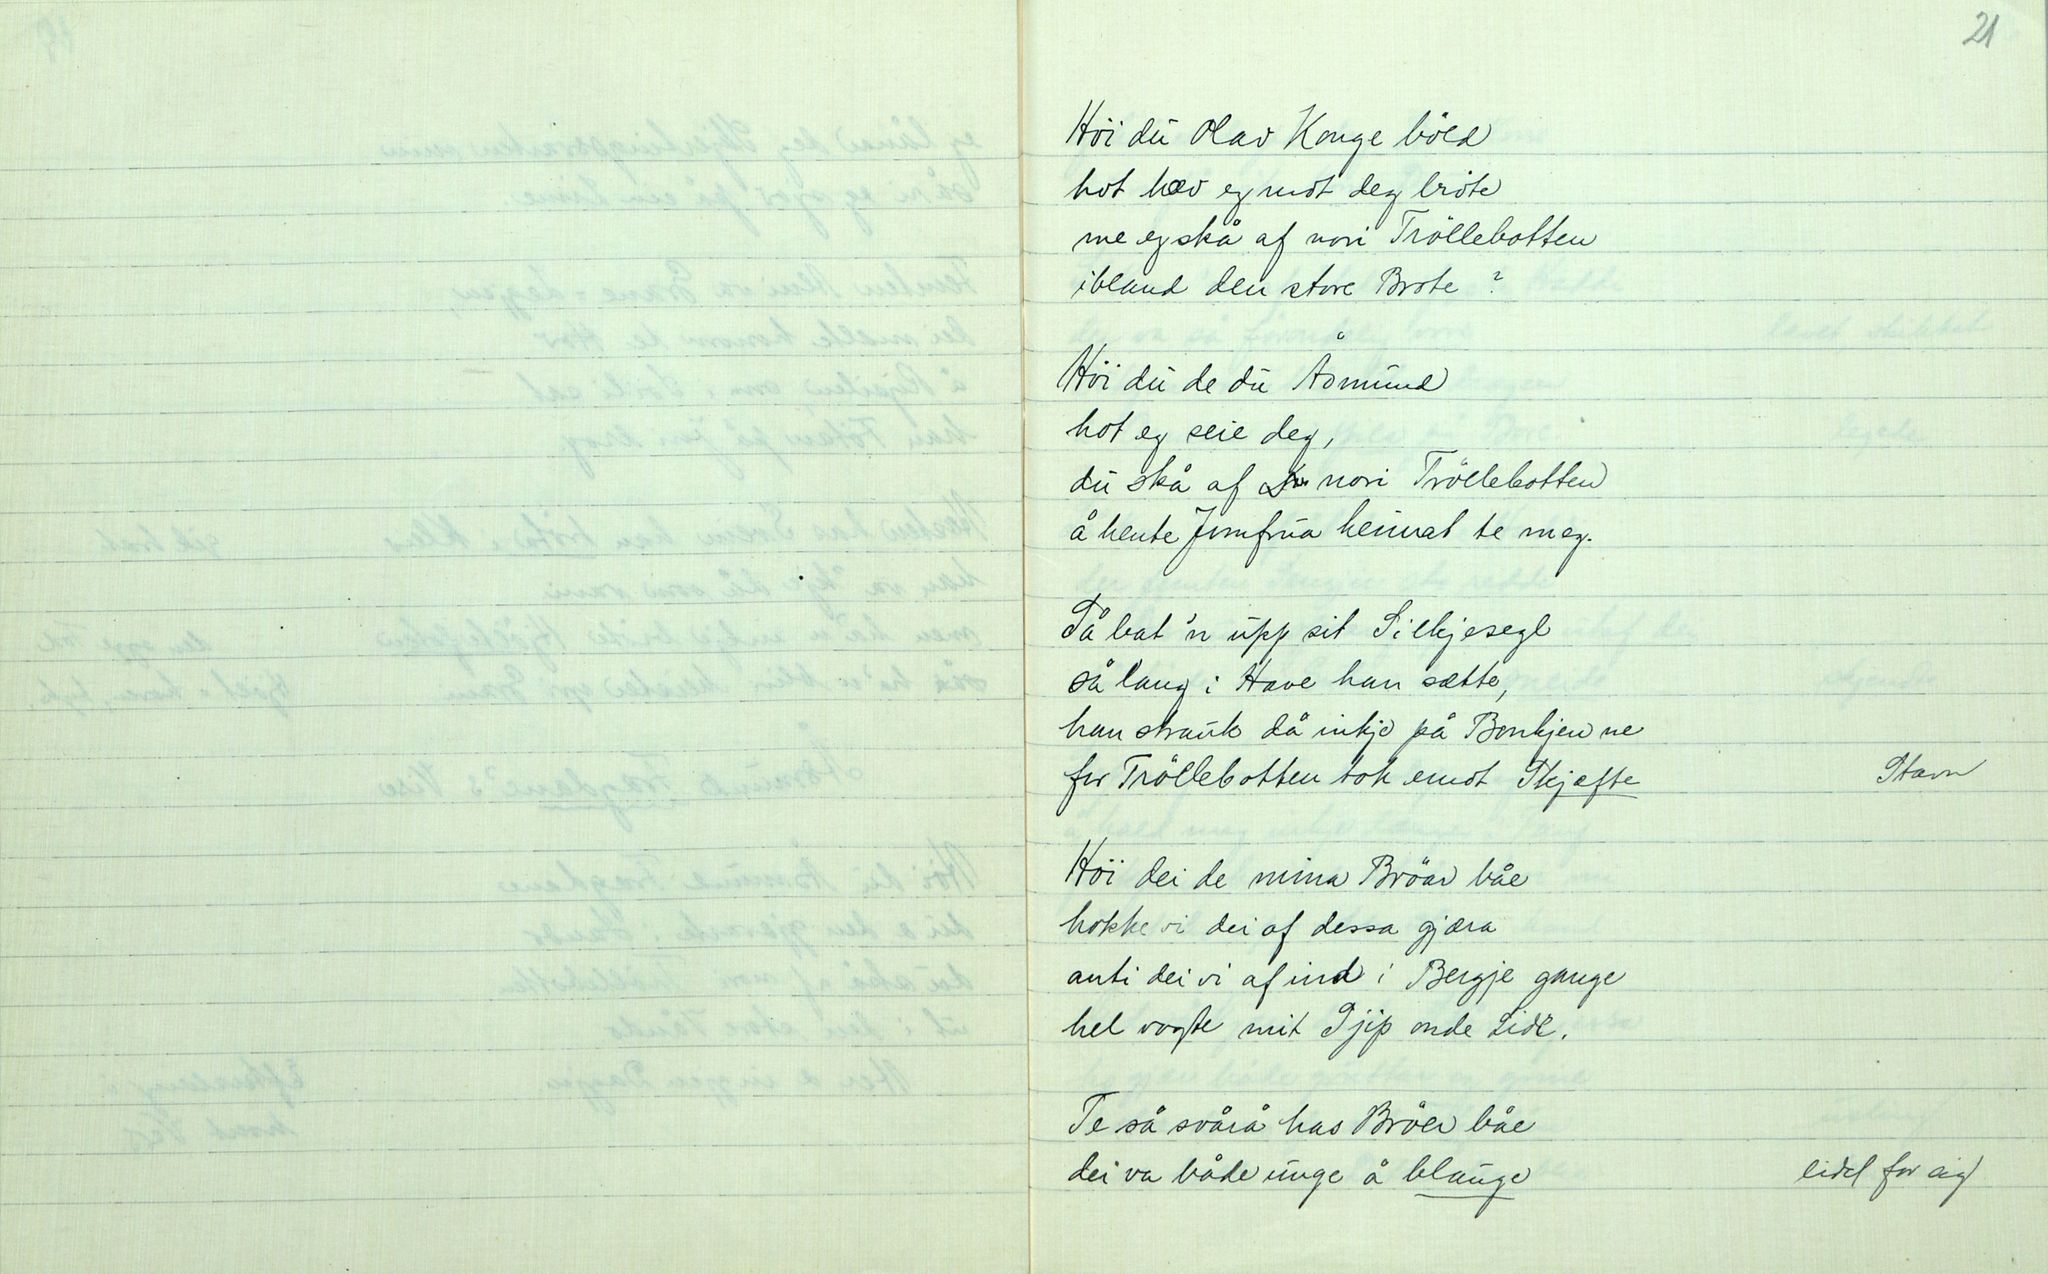 21
Höi dū Olav Konge bold
hot hæv eg mot deg bröte
me eg skå af nori Tröllebotten
ibland den store Brote?
Höi dū de dū Åsmūnd
hot eg seie deg,
dū skå af nori Tröllebotten
å hente Jomfrūa heimat te meg.
Så bat 'n ūpp sit Silkjesegl
så lang i Have han sætte,
han straūk då inkje på Bonkjen ne
for Tröllebotten tok emot Skjæfte
Stavn
Höi dei de mina Bröar båe
hokke vi dei af dessa gjæra
anti dei vi af ind i Bergje gange
hel vogte mit Sjip onde Lide.
Te så svårå has Bröer båe
dei va både ūnge å blaūge
eidel for sig